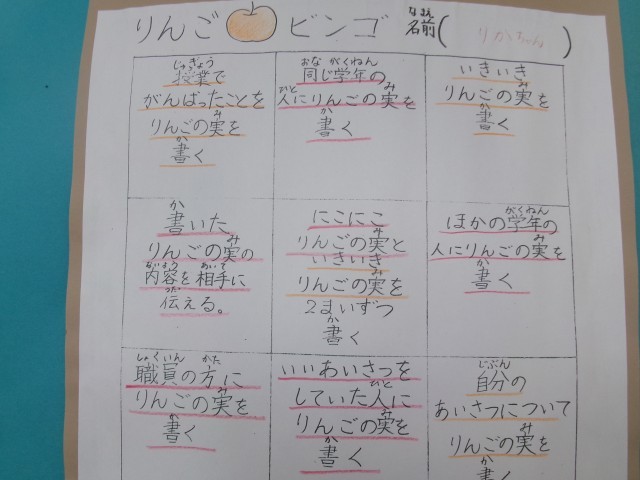 りんご ビンゴ 名前( りかちゃん )
なまえ
じゅぎょう
授業で
がんばったことを
りんごの実を
書く
おな がくねん
同じ学年の
人にりんごの実を
書く
いきいき
りんごの実を
書く
書いた
りんごの実の
内容を相手に
伝える。
にこにこ
りんごの実と
いきいき
りんごの実を
2まいずつ
書く
がくねん
ほかの学年の
人にりんごの実を
書く
しょくいん かた
職員の方に
りんごの実を
書く
いいあいさつを
していた人に
りんごの実を
書く
じぶん
自分の
あいさつについて
りんごの実を
書く